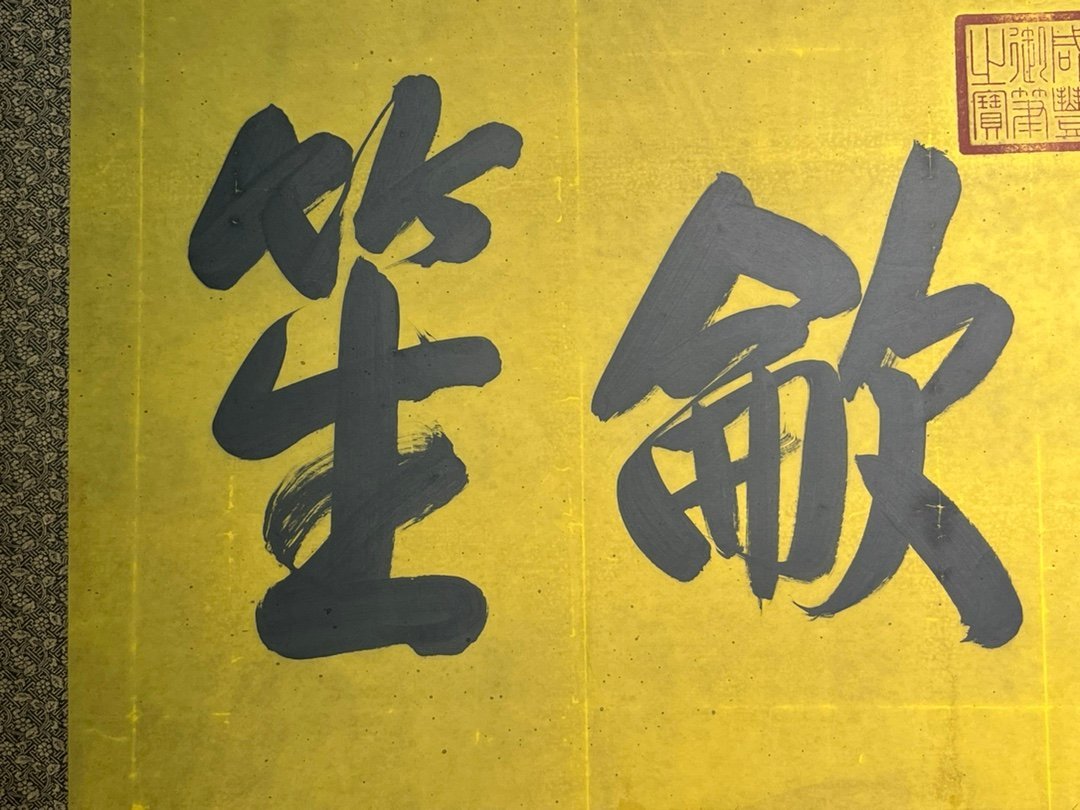 咸豐御筆之寶
龡笙